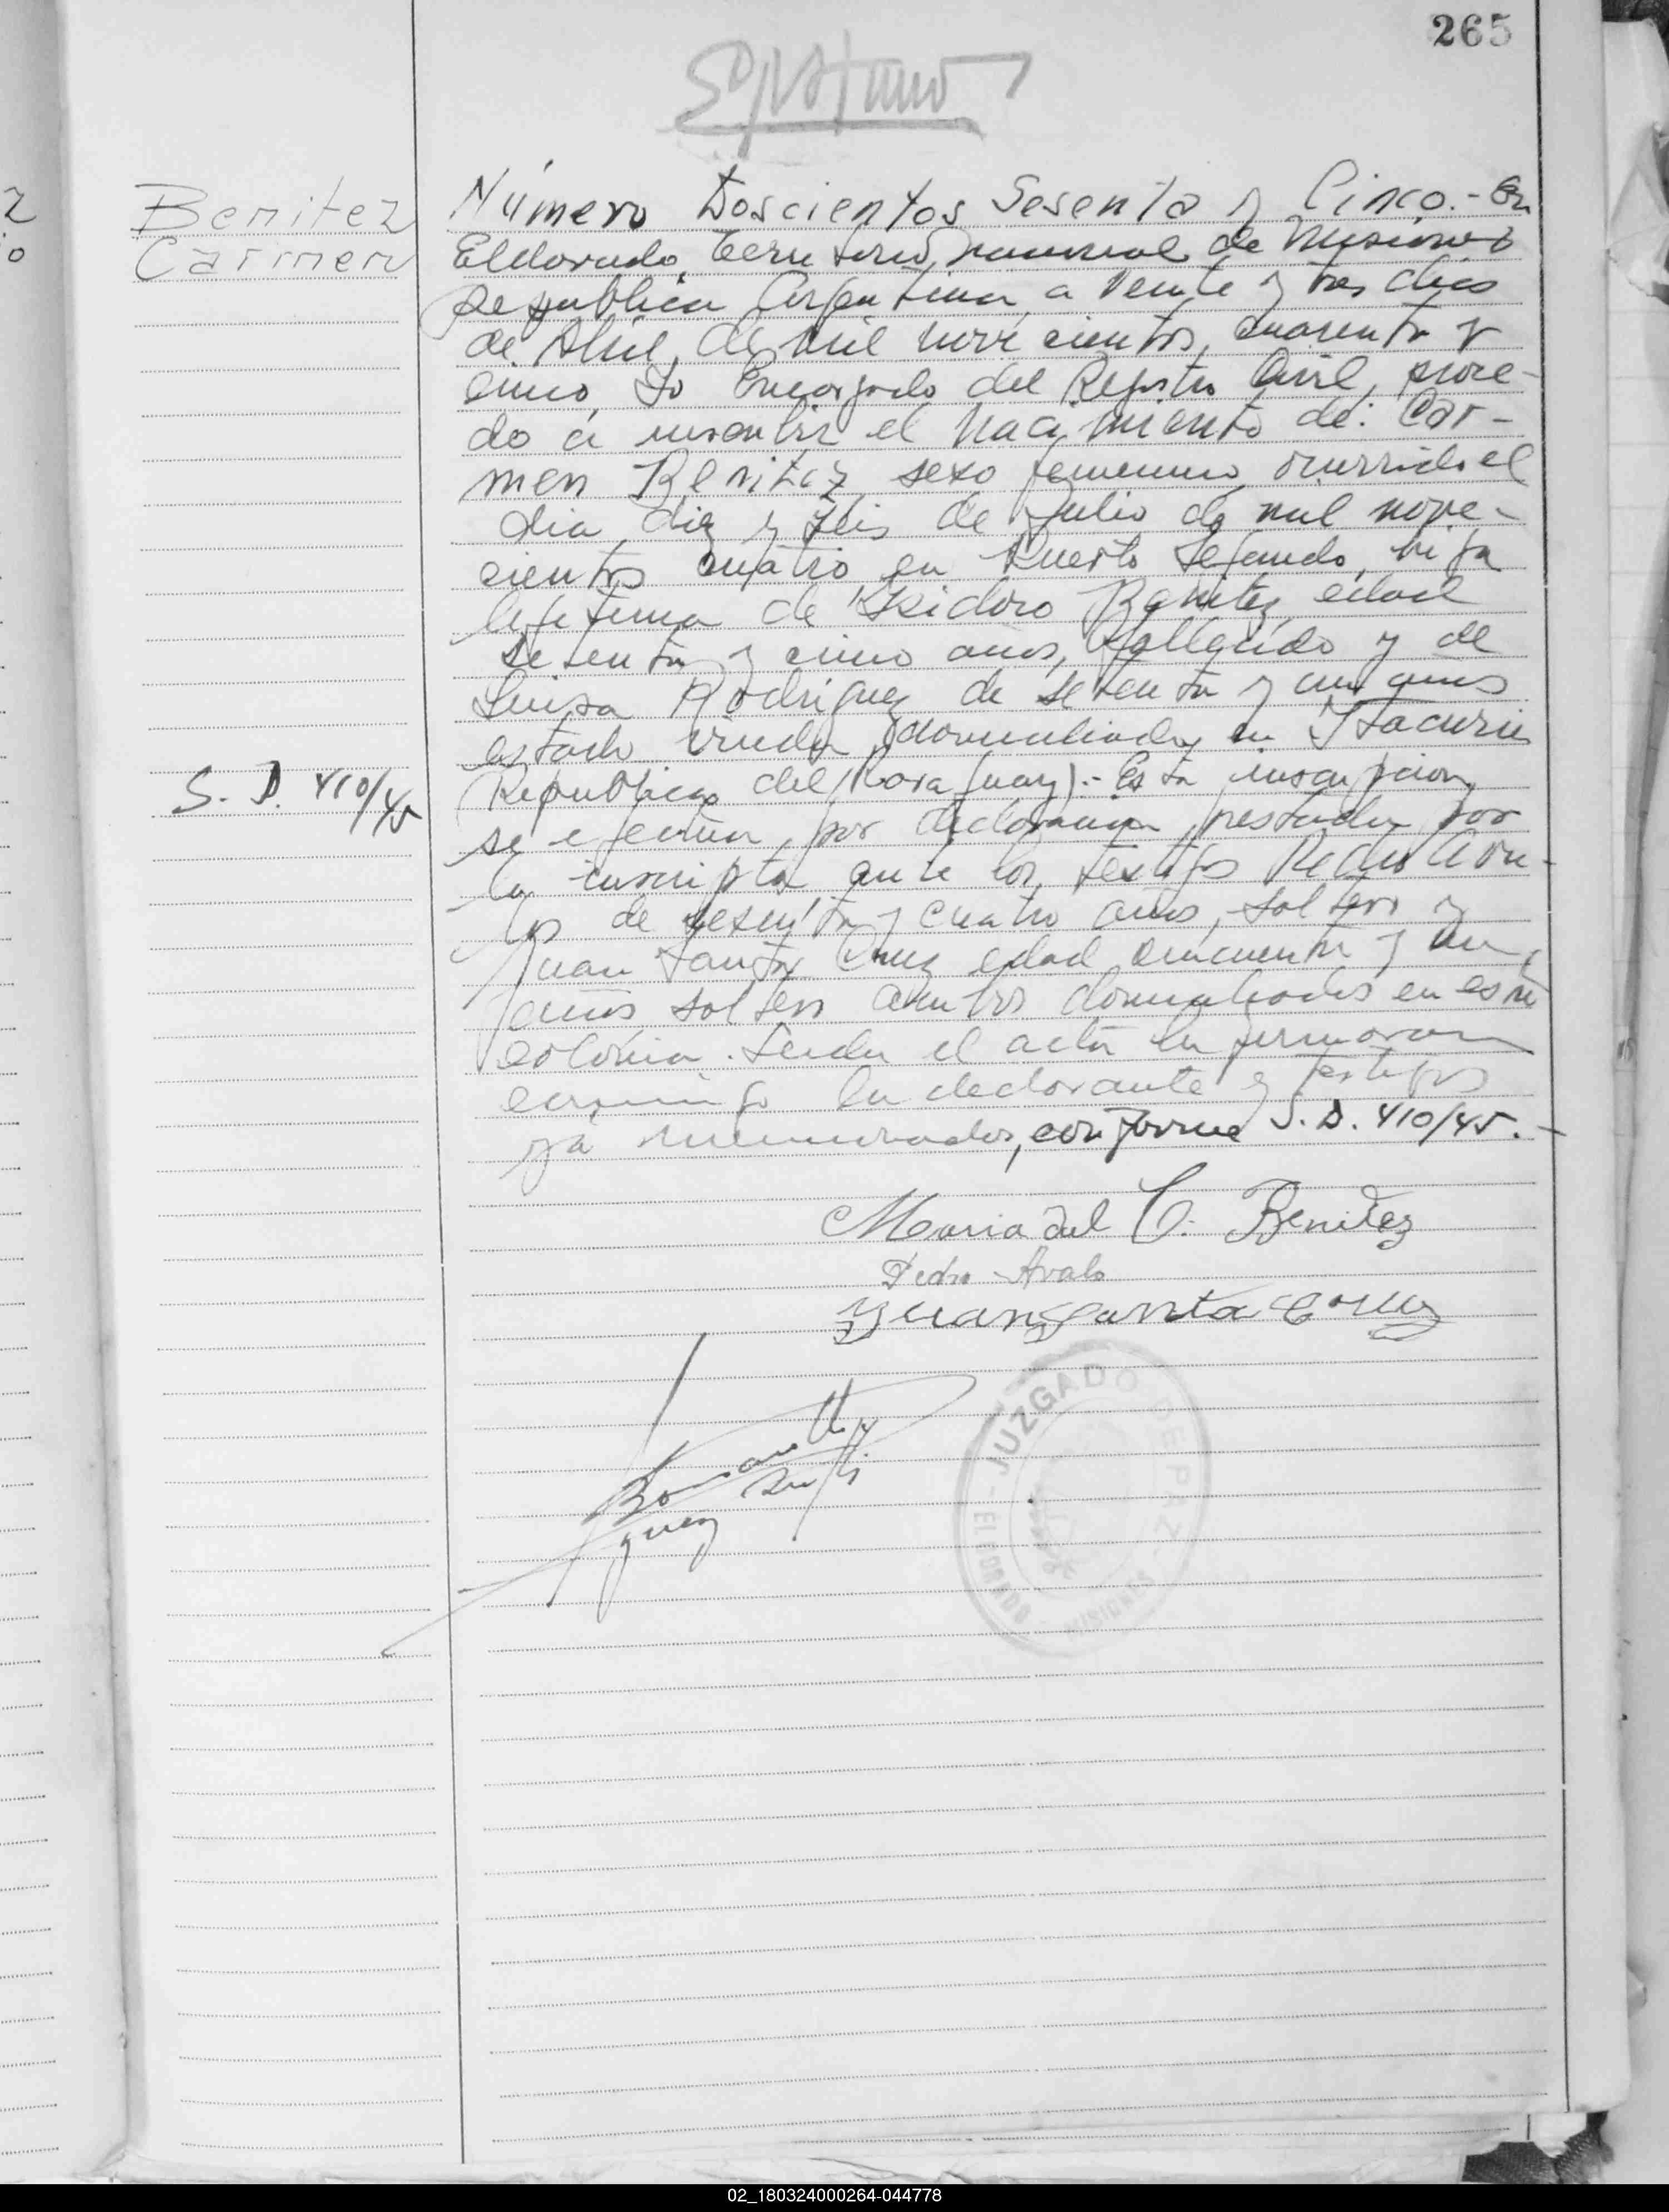 265
Benitez
Carmen
Número Doscientos Sesenta y Cinco.- En
Eldorado, Territorio nacional de Misiones
Republica Argentina a veinte y tres dias
de Abril de mil nove cientos cuarenta y
cinco, Yo Encargado del Registro Civil, proce-
do a inscribir el Nacimiento de: Car-
men Benitez sexo femenino ocurrido el
dia diez y seis de Julio de mil nove-
cientos cuatro en Puerto Segundo, hija
lejitima de Isidoro Benitez edad
setenta y cinco años, fallecido y de
Luisa Rodriguez de setenta y un años
estado viuda domiciliada en
S. D. 410/45
Republica del Paraguay).- Esta inscripcion
se efectua por declaracion prestada por
la inscripta ante los testigos Pedro Ava-
los de sesenta y cuatro años, soltero y
Juan Santa Cruz edad cincuenta y un
años soltero ambos domiciliados en esta
colonia. Leida el acta la firmaron
conmigo la declarante y testigos
ya mencionados, conforme S. D. 410/45.-
Maria del C. Benitez
Pedro Avalo
Juan Santa Cruz
JUZGADO DE PAZ
ELDORADO MISIONES
02_180324000264-044778